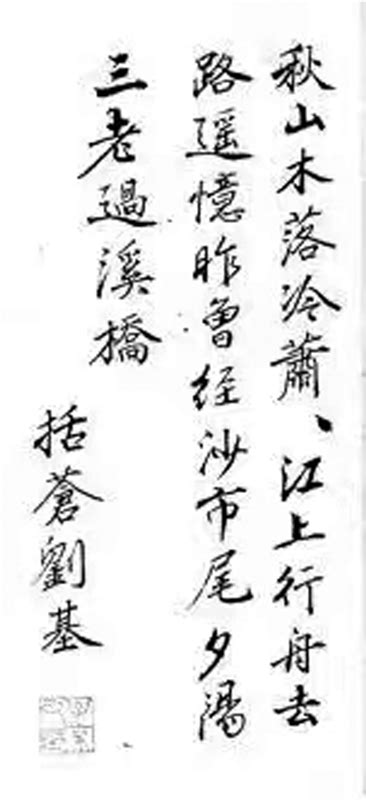 秋山木落冷蕭、江上行舟去
路遥憶昨曾经沙市尾夕陽
三老過溪橋
括蒼劉基